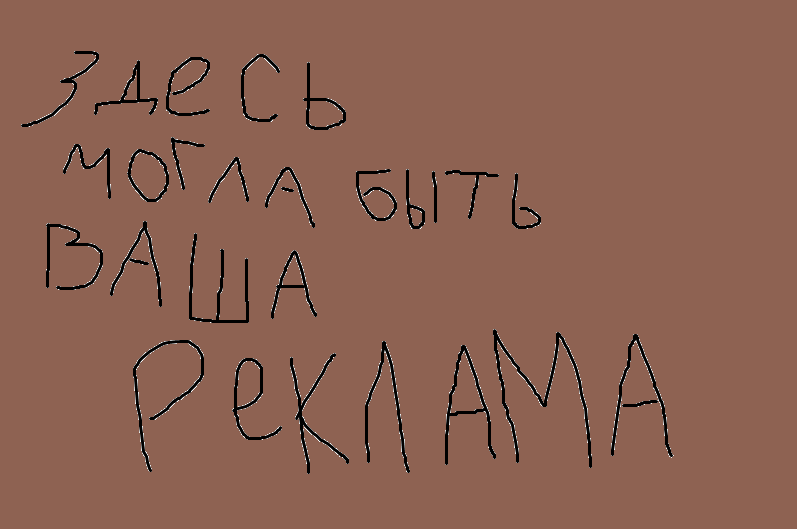 Здесь
могла быть
ваша
реклама